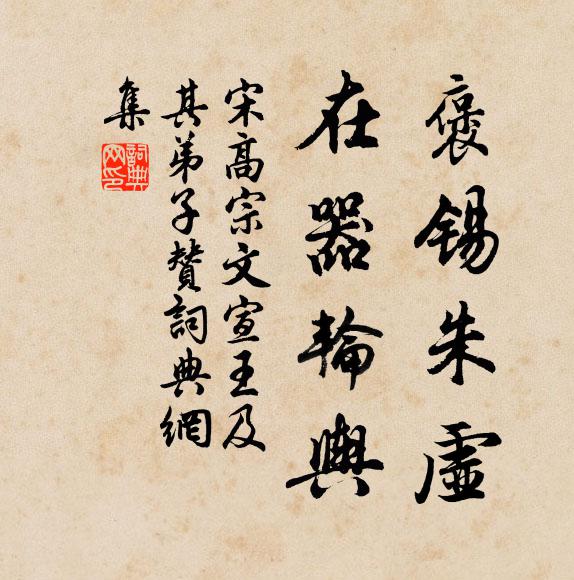 褒錫朱虛
在器輪輿
宋高宗文宣王及
其弟子贊詞典網
集
詞典網印